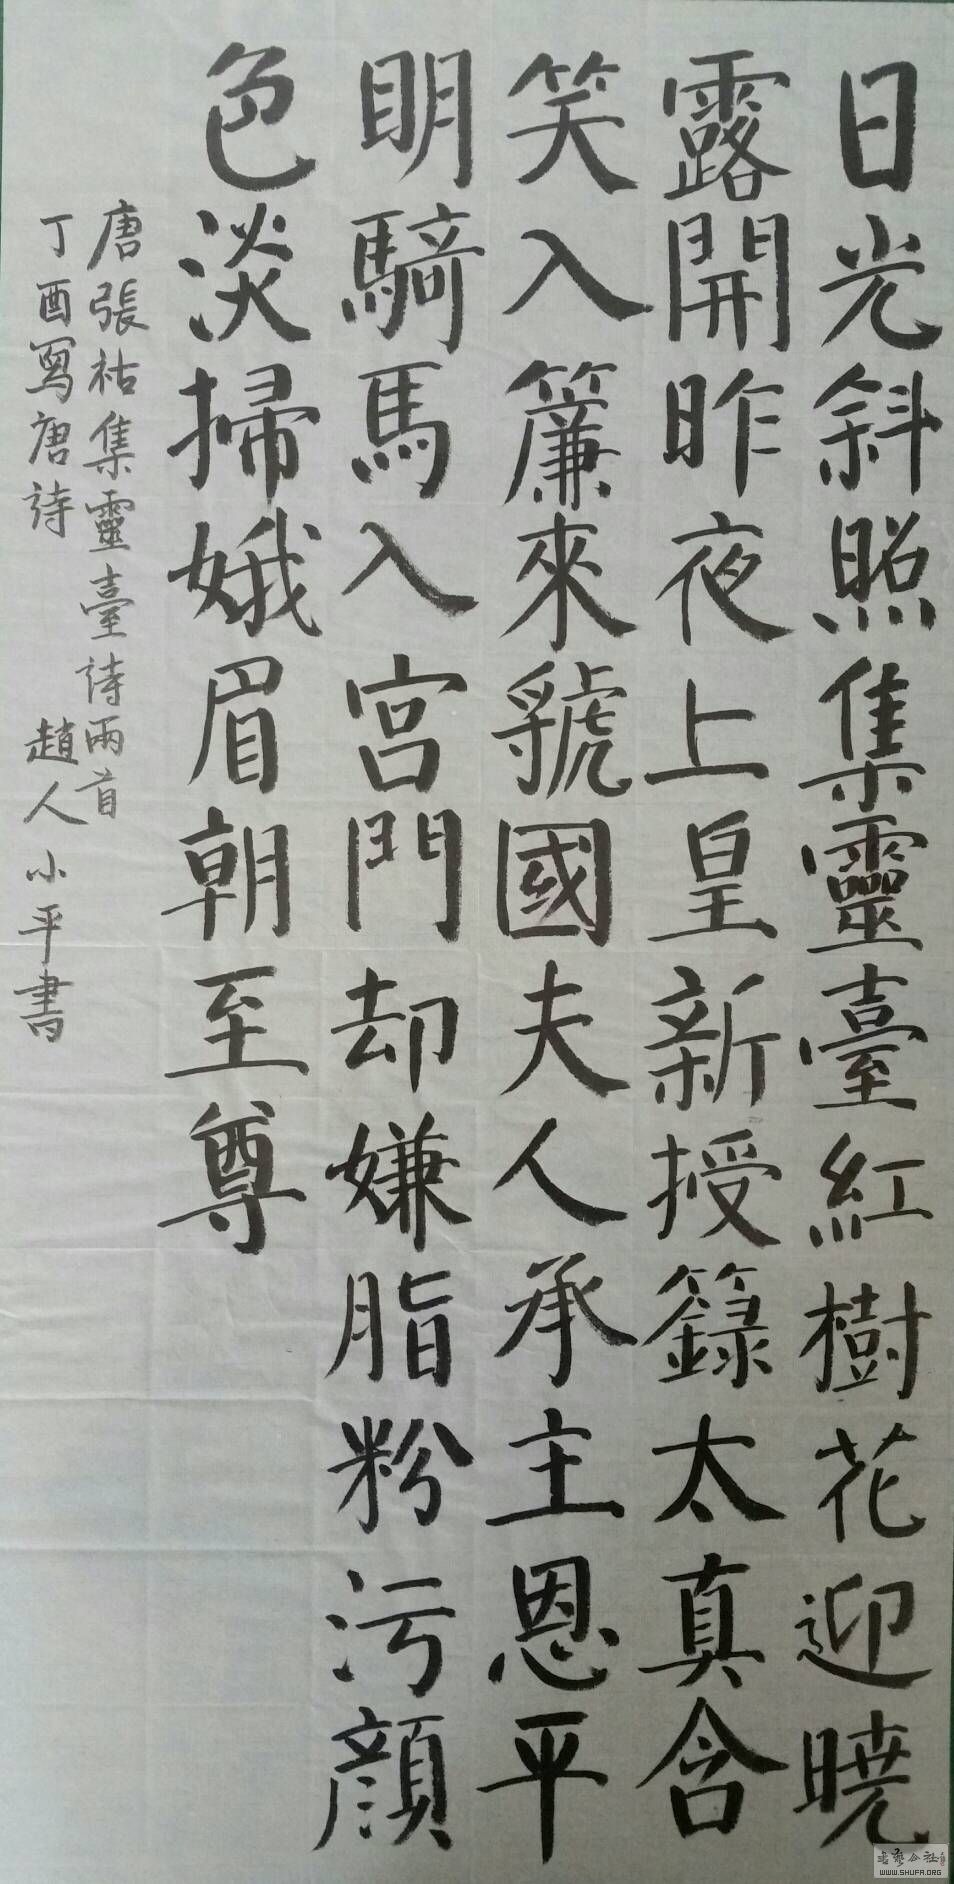 日光斜照集靈臺紅樹花迎曉
露開昨夜上皇新授籙太真含
笑入簾來虢國夫人承主恩平
明騎馬入宮門却嫌脂粉污顔
色淡掃娥眉朝至尊
唐張祜集靈臺詩兩首
丁酉寫唐詩 趙人小平書
WWW.SHUFA.ORG